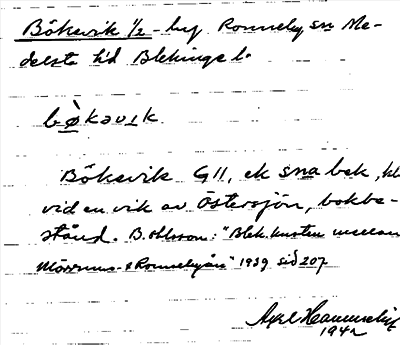 Bökevik 1/2 - by Ronneby sn Me-
delsta hd Blekinge l.
bø̀kəvɪk
Bökevik G11, ek sna bek, kl
vid en vik av Östersjön, bokbe-
stånd. B. Ohlsson: "Blek. kusten mellan
Mörrums- & Ronnebyån" 1939 sid 207
Axel
1942